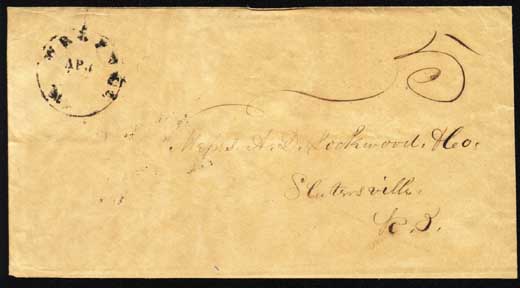 APR
5
Messrs A. D. Lockwood & Co.
Slatersville.
R. I.